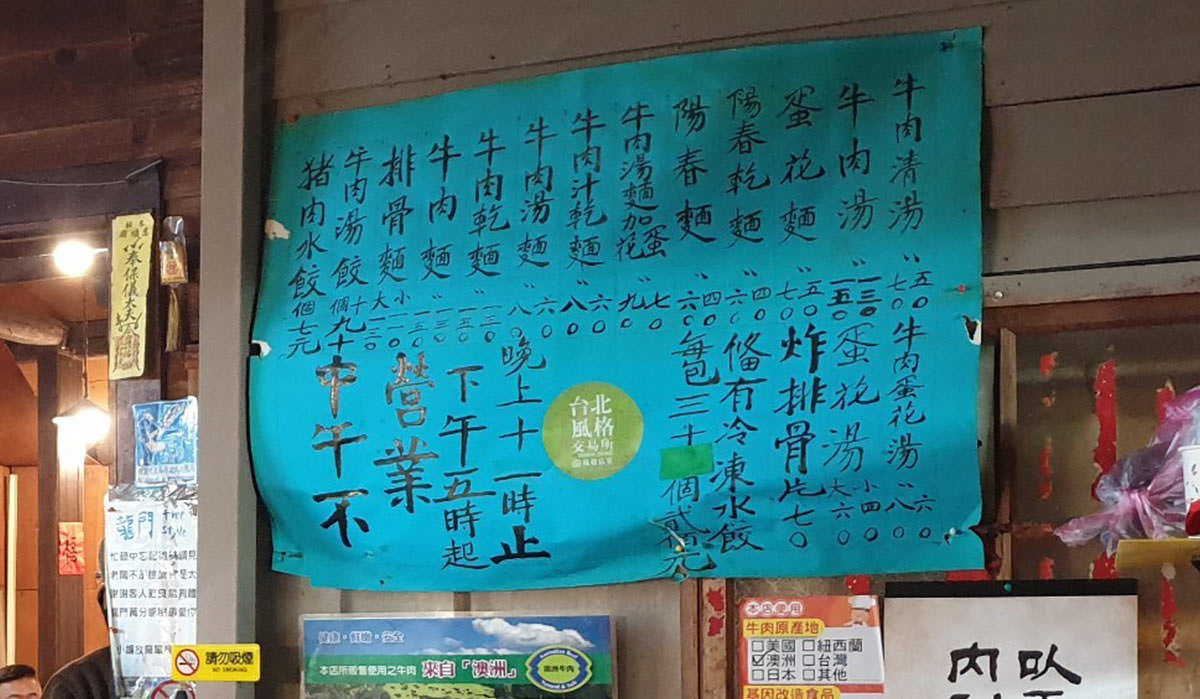 牛肉清湯 〃 五〇 七〇
牛肉湯 〃 一三〇 一五〇
蛋花麵 〃 五〇 七〇
陽春乾麵 〃 四〇 六〇
陽春麵 〃 四〇 六〇
牛肉湯麵加蛋花 〃 七〇 九〇
牛肉汁乾麵 〃 六〇 八〇
牛肉湯麵 〃 六〇 八〇
牛肉乾麵 〃 一三〇 一五〇
牛肉麵 〃 一三〇 一五〇
排骨麵 小一一〇 大一三〇
牛肉湯餃 十個九十
猪肉水餃 個七元
牛肉蛋花湯 〃 六〇 八〇
蛋花湯 小四〇 大六〇
炸排骨片七〇
俻有冷凍水餃
每包三十個貳佰元
台北
風格
交易所
晚上十一時止
下午五時起
營業
中午不
奉保儀大夫
龍門
請勿吸煙
NO SMOKING
健康·鮮嫩·安全
本店所販售使用之牛肉 來自「澳洲」
澳洲牛肉
本店使用
牛肉原產地
□美國 □紐西蘭
☑澳洲 □台灣
□日本 □其他
基因改造食品